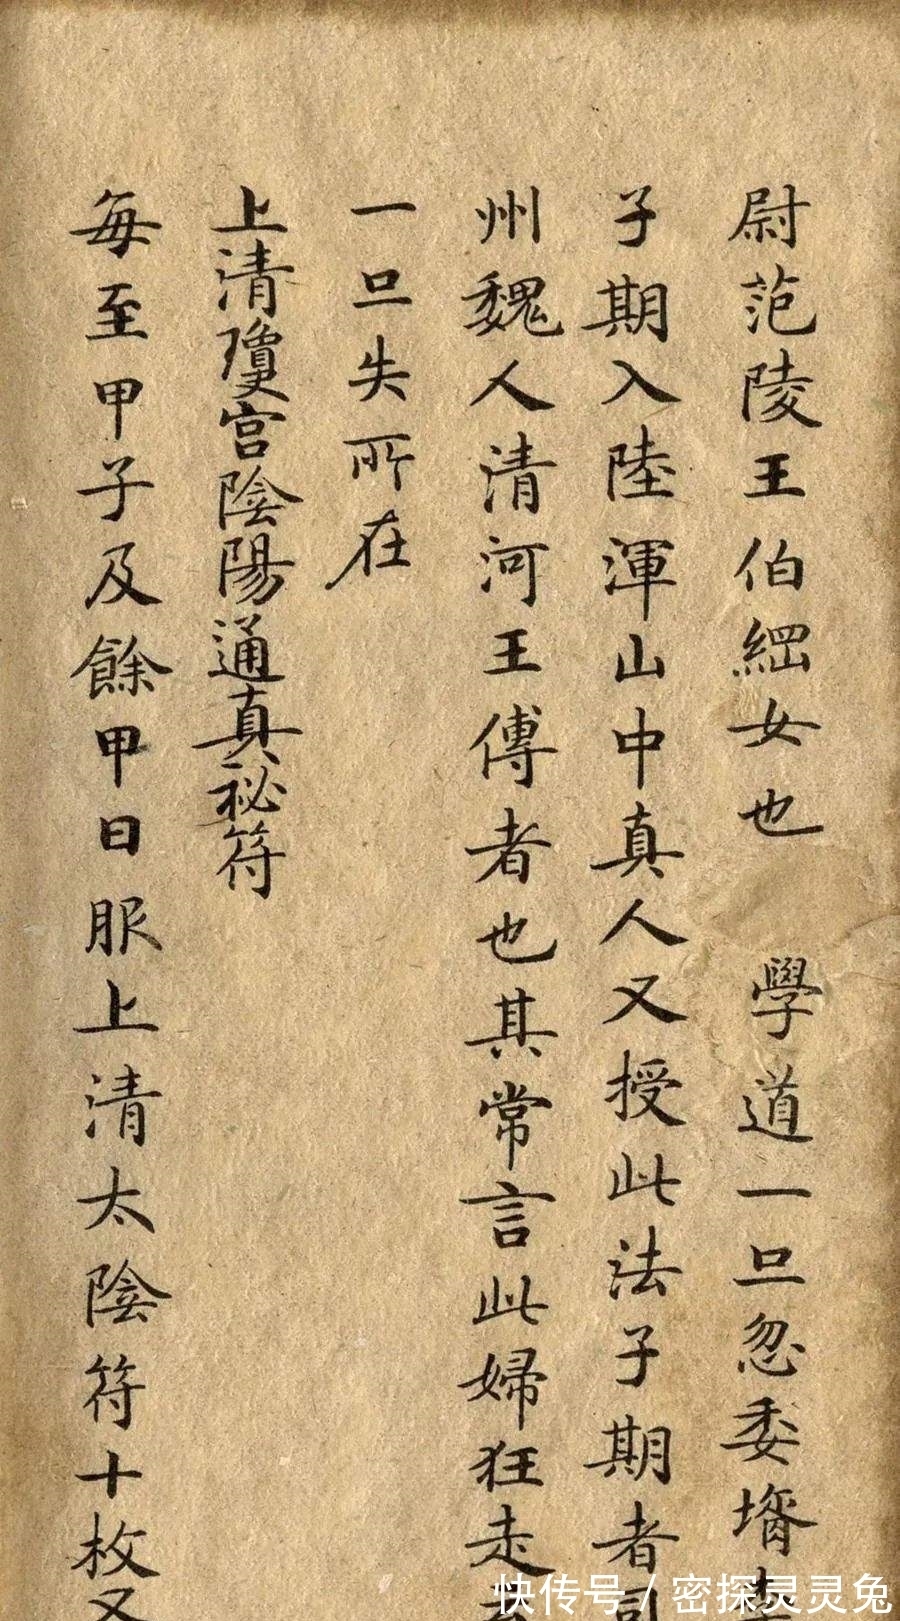 尉范陵王伯綱女也　學道一旦忽委壻
子期入陸渾山中真人又授此法子期者司
州魏人清河王傅者也其常言此婦狂走
一旦失所在
上清瓊宮陰陽通真祕符
每至甲子及餘甲日服上清太陰符十枚又
快传号/密探灵灵兔